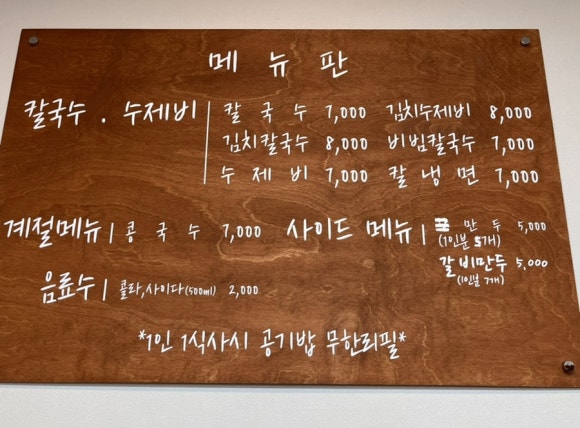 메뉴판
칼국수 . 수제비 | 칼국수 7,000 김치수제비 8,000
김치칼국수 8,000 비빔칼국수 7,000
수제비 7,000 칼냉면 7,000
계절메뉴 | 콩국수 7,000 사이드 메뉴 | 만두 5,000
(1인분 5개)
갈비만두 5,000
(1인분 7개)
음료수 | 콜라,사이다(500ml) 2,000
*1인 1식사시 공기밥 무한리필*